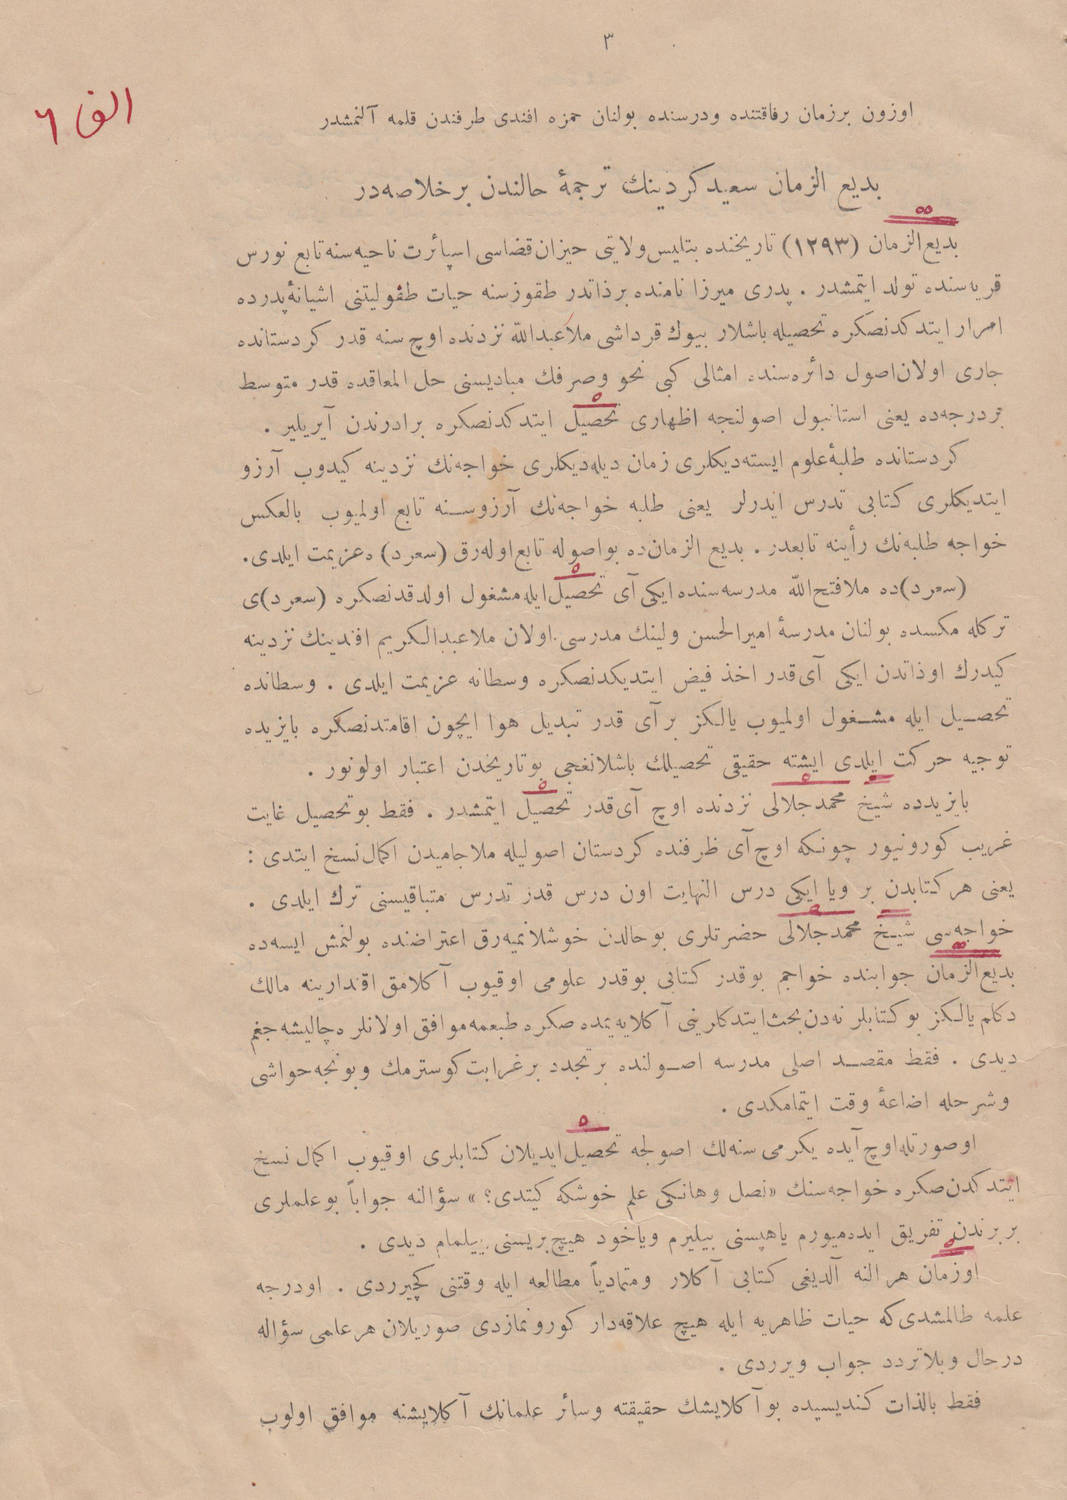 ٣
الف ٦
اوزون برزمان رفاقتنده ودرسنده بولنان حمزه افندى طرفندن قلمه آلنمشدر
بديع الزمان سعيد كردينك ترجمهٔ حالندن برخلاصه‌در
بديع‌الزمان (١٢٩٣) تاريخنده بتليس ولايتى حيزان قضاسى اسپائرت ناحيه‌سنه تابع نورس
قريه‌سنده تولد ايتمشدر . پدرى ميرزا نامنده برذاتدر طقوزسنه حيات طفوليتنى اشيانهٔ پدرده
امرار ايتدكدنصكره تحصيله باشلار بيوك قرداشى ملاعبدالله نزدنده اوچ سنه قدر كردستانده
جارى اولان اصول دائره‌سنده امثالى كبى نحو وصرفك مباديسنى حل المعاقده قدر متوسط
بردرجه‌ده يعنى استانبول اصولنجه اظهارى تحصيل ايتدكدنصكره برادرندن آيريلير .
كردستانده طلبهٔ علوم ايسته‌ديكلرى زمان ديله‌ديكلرى خواجه‌نك نزدينه كيدوب آرزو
ايتديكلرى كتابى تدرس ايدرلر يعنى طلبه خواجه‌نك آرزوسنه تابع اولميوب بالعكس
خواجه طلبه‌نك رأينه تابعدر . بديع الزمان‌ده بواصوله تابع اوله‌رق (سعرد) ه‌عزيمت ايلدى.
(سعرد)ده ملافتح‌الله مدرسه‌سنده ايكى آى تحصيل ايله مشغول اولدقدنصكره (سعرد)ى
تركله مكسده بولنان مدرسهٔ اميرالحسن ولينك مدرسى اولان ملاعبدالكريم افندينك نزدينه
كيدرك اوذاتدن ايكى آى قدر اخذ فيض ايتديكدنصكره وسطانه عزيمت ايلدى . وسطانده
تحصيل ايله مشغول اولميوب يالكز برآى قدر تبديل هوا ايچون اقامتدنصكره بايزيده
توجيه حركت ايلدى ايشته حقيقى تحصيلك باشلانغجى بوتاريخدن اعتبار اولونور .
بايزيدده شيخ محمدجلالى نزدنده اوچ آى قدر تحصيل ايتمشدر . فقط بوتحصيل غايت
غريب كورونيور چونكه اوچ آى ظرفنده كردستان اصوليله ملاجاميدن اكمال نسخ ايتدى :
يعنى هركتابدن بر ويا ايكى درس النهايت اون درس قدر تدرس متباقيسنى ترك ايلدى .
خواجه‌سى شيخ محمدجلالى حضرتلرى بوحالدن خوشلانميه‌رق اعتراضنده بولنمش ايسه‌ده
بديع‌الزمان جوابنده خواجم بوقدر كتابى بوقدر علومى اوقيوب آكلامق اقتدارينه مالك
دكلم يالكز بوكتابلر نه‌دن بحث ايتدكلرينى آكلايه‌يمده صكره طبعمه موافق اولانلره چاليشه‌جغم
ديدى . فقط مقصد اصلى مدرسه اصولنده برتجدد برغرابت كوسترمك وبونجه حواشى
وشرحله اضاعهٔ وقت ايتمامكدى .
اوصورتله اوچ آيده يكرمى سنه‌لك اصولجه تحصيل ايديلان كتابلرى اوقيوب اكمال نسخ
ايتدكدن صكره خواجه‌سنك «نصل وهانكى علم خوشكه كيتدى؟» سؤالنه جواباً بوعلملرى
بربرندن تفريق ايده‌ميورم ياهپسنى بيليرم وياخود هيچ بريسنى بيلمام ديدى .
اوزمان هر النه آلديغى كتابى آكلار ومتمادياً مطالعه ايله وقتنى كچيرردى . اودرجه
علمه طالمشدى كه حيات ظاهريه ايله هيچ علاقه‌دار كورونمازدى صوريلان هرعلمى سؤاله
درحال وبلاتردد جواب ويرردى .
فقط بالذات كنديسيده بوآكلايشك حقيقته وسائر علمانك آكلايشنه موافق اولوب